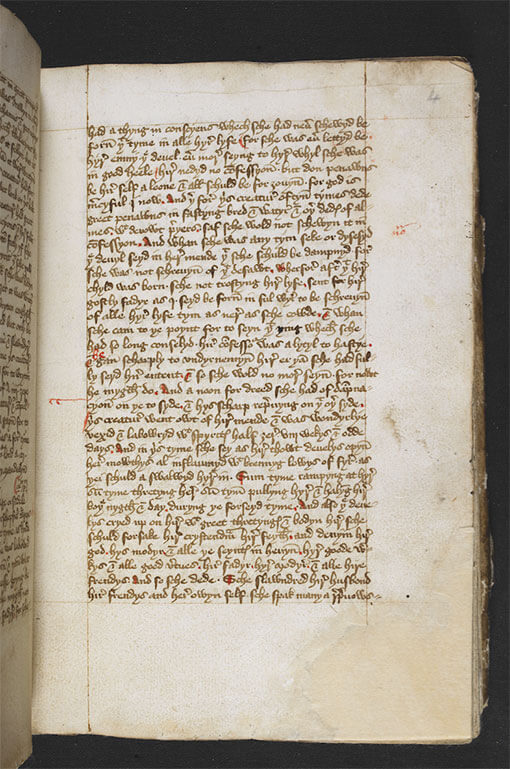 4
had a thyng in conscyens whech sche had neuer schewyd be
forn þat tyme in alle hyr lyfe. For sche was euyr lettyd be
hyr enmy þe deuel. euyr mor seyng to hyr whyl sche was
in good heele hir nedyd no confessyon. but don penawns
be hir self a loone & all schuld be for ȝouyn. for god is
mercyful I now. And þerfor þis creatur oftyn tymes dede
greet penawns in fastyng bred & watyr & oþer dedys of al
mes wyth devowt preyers saf sche wold not schewyn it in
confessyon. And whan sche was any tym seke or dysesyd
þe deuyl seyd in her mende þat sche schuld be dampnyd for
sche was not schreuyn of þat defawt. Wherfor aftyr þat hir
chyld was born sche not trostyng hir lyfe. sent for hir
gostly fadyr as I seyd be forn in ful wyl to be schreuyn
of alle hir lyfe tym as ner as sche cowde. & whan
sche cam to þe poynt for to seyn þat þing whech sche
had so long conselyd. hir confessowr was a lytyl to hastye
& gan scharply to vndyrnemyn hir er þan sche had ful
ly seyd hir entent. & so sche wold no mor seyn for nowt
he mygth do. And a noon for dreed sche had of dampna
cyon on þe to syde. & hys scharp repreuyng on þat oþer syde.
þis creatur went owt of hir mende & was wondyrlye
vexid & labowryd wyth spyritys half ȝer viij wekys & odde
days. And in þis tyme sche sey as hir thowt deuelys opyn
her mowthys al inflaumyd wyth brennyng lowys of fyr as
þei schuld a swalwyd hyr in. Sum tyme rampyng at hyr
sum tyme thretyng her. sum tym pullyng hyr & halyng hir
boþe nygth & day duryng þe forseyd tyme. And also þe deue
lys cryed up on hir wyth greet thretyngys & bodyn hir sche
schuld forsake hir crystendam hir feyth. and denyin hir
god. hys modyr & alle þe seyntys in heuyn. hyr goode wer
kys & alle good vertues. hir fadyr. hyr modyr. & alle hire
frendys. And so sche dede. Sche slawndred hir husbond
hir frendys and her owyn self. sche spak many a repreuows